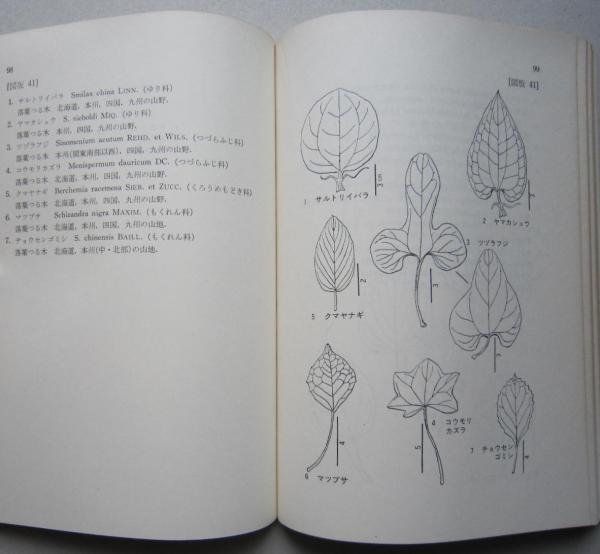 98
[図版 41]
1. サルトリイバラ Smilax china LINN. (ゆり科)
落葉つる木 北海道, 本州, 四国, 九州の山野.
2. ヤマカシュウ S. sieboldi MIQ. (ゆり科)
落葉つる木 本州, 四国, 九州の山野.
3. ツヅラフジ Sinomenium acutum REHD. et WILS. (つづらふじ科)
落葉つる木 本州(関東南部以西), 四国, 九州の山野.
4. コウモリカズラ Menispermum dauricum DC. (つづらふじ科)
落葉つる木 北海道, 本州, 四国, 九州の山野.
5. クマヤナギ Berchemia racemosa SIEB. et ZUCC. (くろうめもどき科)
落葉つる木 北海道, 本州, 四国, 九州の山野.
6. マツブサ Schizandra nigra MAXIM. (もくれん科)
落葉つる木 北海道, 本州, 四国, 九州の山地.
7. チョウセンゴミシ S. chinensis BAILL. (もくれん科)
落葉つる木 北海道, 本州(中・北部)の山地.
99
[図版 41]
3 cm
1 サルトリイバラ
3
2 ヤマカシュウ
3
3 ツヅラフジ
2
5 クマヤナギ
4
6 マツブサ
5
4 コウモリ
カズラ
7 チョウセン
ゴミシ
4